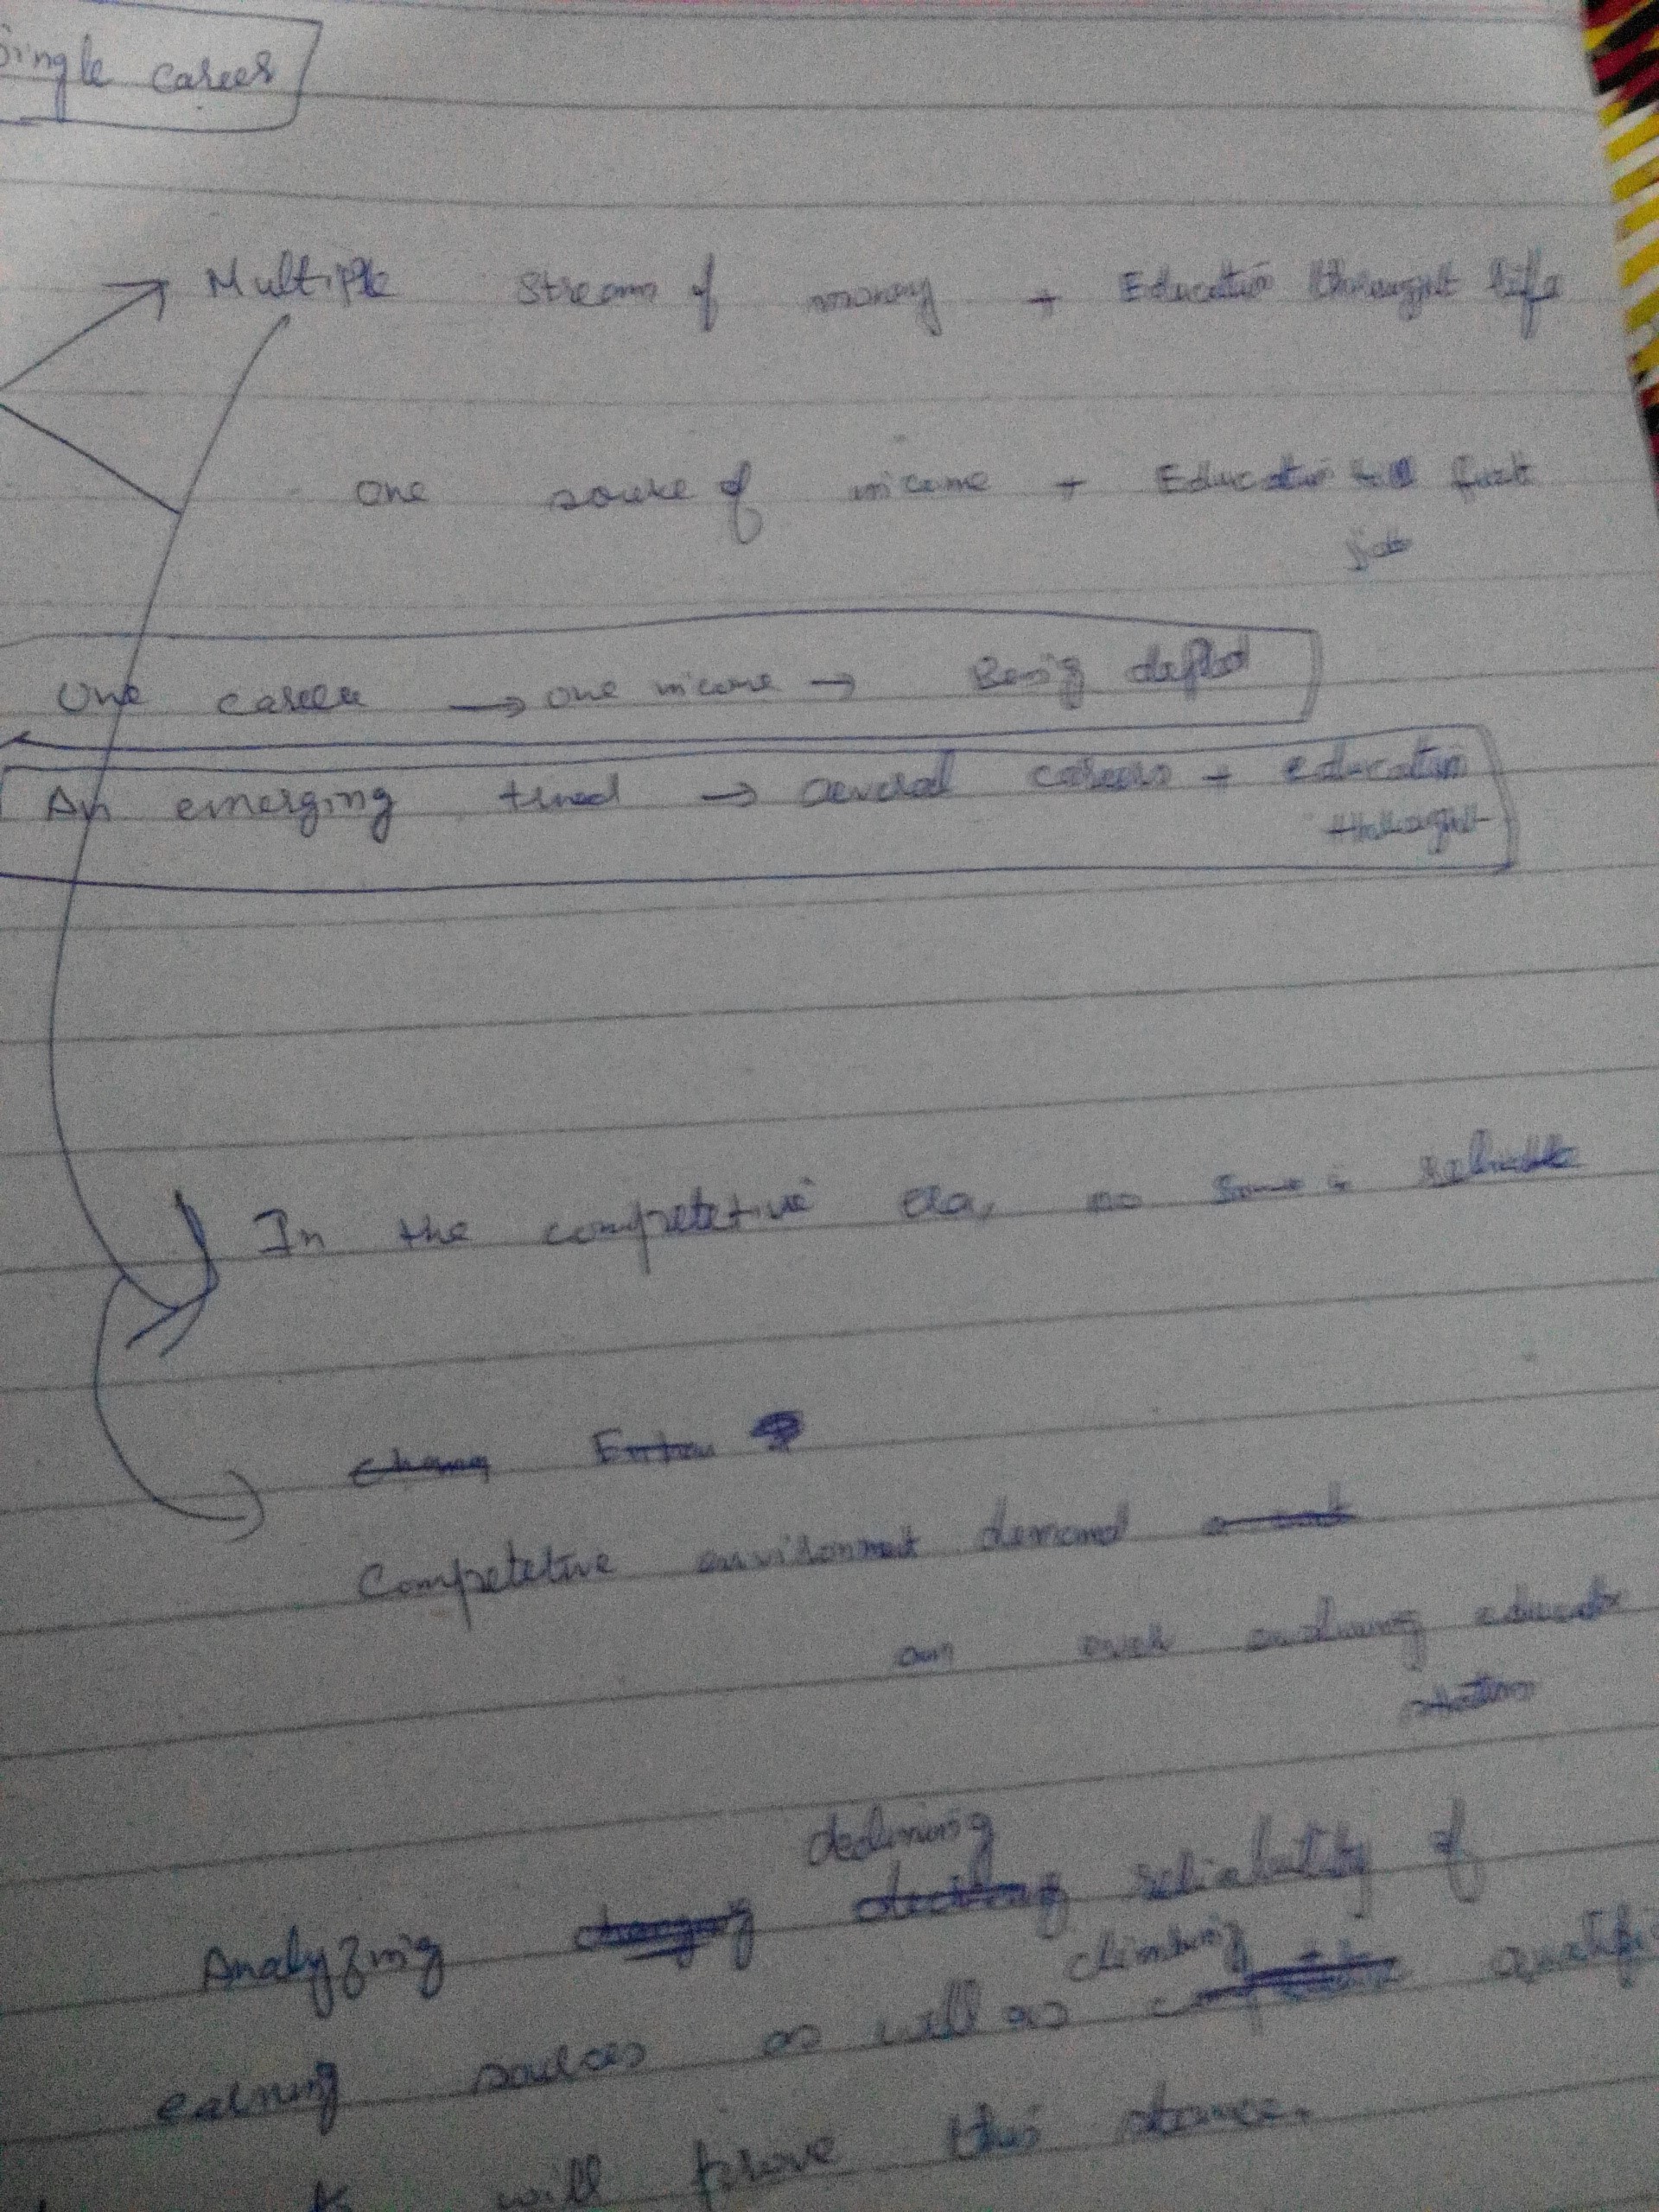 Single career
Multiple stream of money + Education throught life
One sourse of income + Education till first
job
One career → one income →
An emerging trend → several careers + education
throught
In the competetive era, no source is reliable
Competetive environment demand
an ever evolving
declining
Analyzing reliability of
climbing
earning sources as well as
will prove this stance.